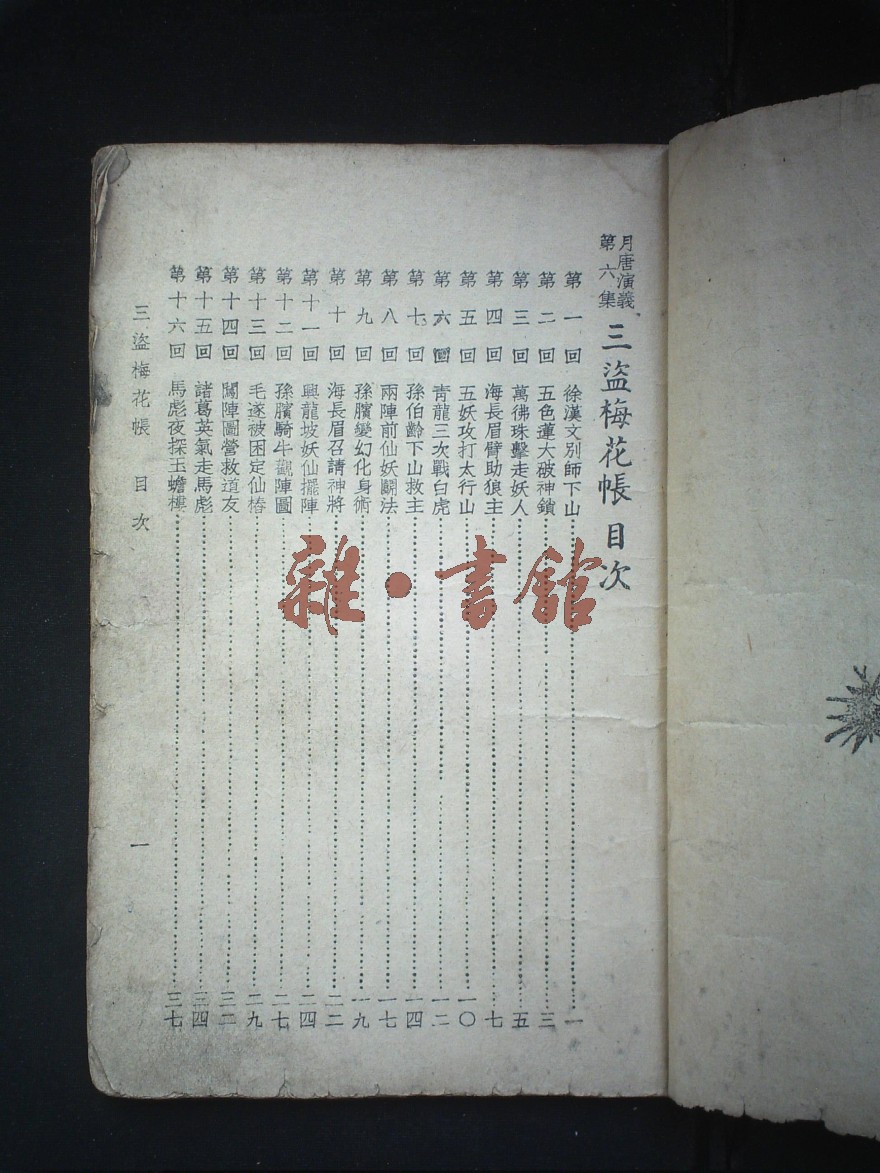 月唐演義
第六集
三盜梅花帳 目次
第一回 徐漢文別師下山 一
第二回 五色蓮大破神鎖 三
第三回 萬彿珠擊走妖人 五
第四回 海長眉臂助狼主 七
第五回 五妖攻打太行山 一〇
第六回 青龍三次戰白虎 一二
第七回 孫伯齡下山救主 一四
第八回 兩陣前仙妖鬭法 一七
第九回 孫臏變幻化身術 一九
第十回 海長眉召請神將 二二
第十一回 興龍坡妖仙擺陣 二四
第十二回 孫臏騎牛觀陣圖 二七
第十三回 毛遂被困定仙樁 二九
第十四回 闖陣圖營救道友 三二
第十五回 諸葛英氣走馬彪 三四
第十六回 馬彪夜探玉蟾樓 三七
三盜梅花帳 目次 一
雜·書館